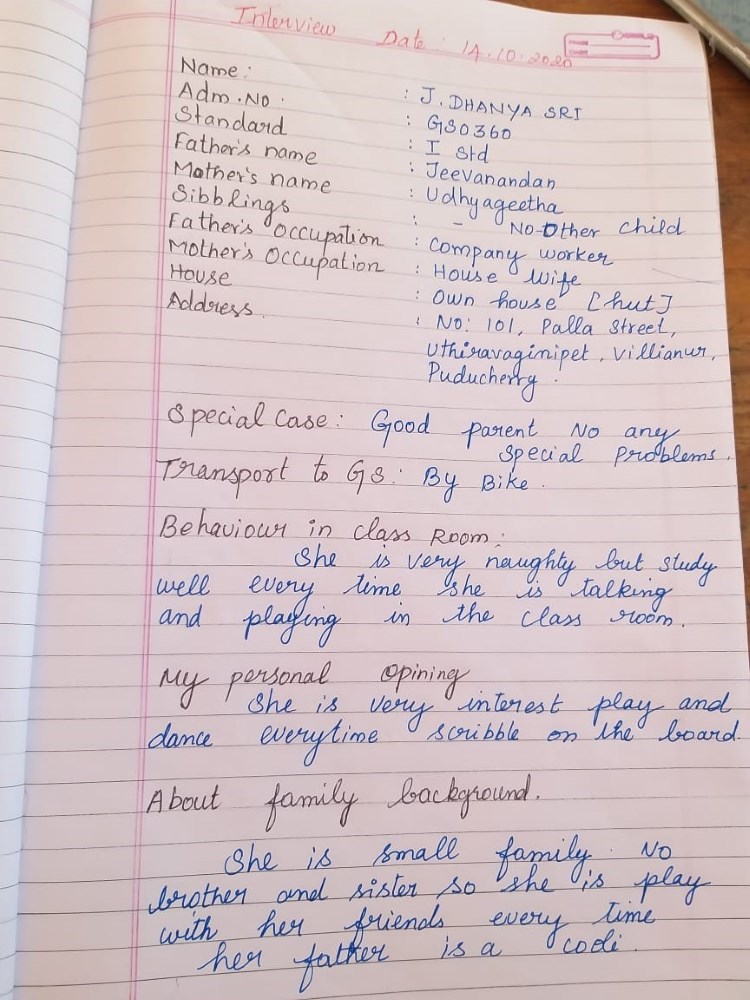 Interview Date : 14.10.2020
Name : : J. DHANYA SRI
Adm. No. : GS0360
Standard : I Std
Father's name : Jeevanandan
Mother's name : Udhyageetha
Sibblings : - No Other child
Father's Occupation : Company worker
Mother's Occupation : House wife
House : Own house [hut]
Address. : No: 101, Palla Street,
Uthiravaginipet, Villianur,
Puducherry.
Special Case: Good parent No any
special problems.
Transport to GS: By Bike.
Behaviour in Class Room:
She is very naughty but study
well every time she is talking
and playing in the class room.
My personal Opining
She is very interest play and
dance everytime scribble on the board.
About family background.
She is small family. No
brother and sister so she is play
with her friends every time
her father is a codi.